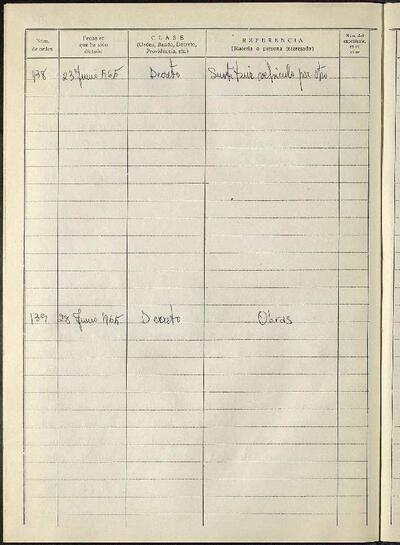 Núm. de orden
Fecha en que ha sido dictado
CLASE
(Orden, Bando, Decreto, Providencia, etc.)
REFERENCIA
(Materia o persona interesada)
Núm. del
138 23 Junio 1965 Decreto Sustituir vehículo por otro
139 28 Junio 1965 Decreto Obras